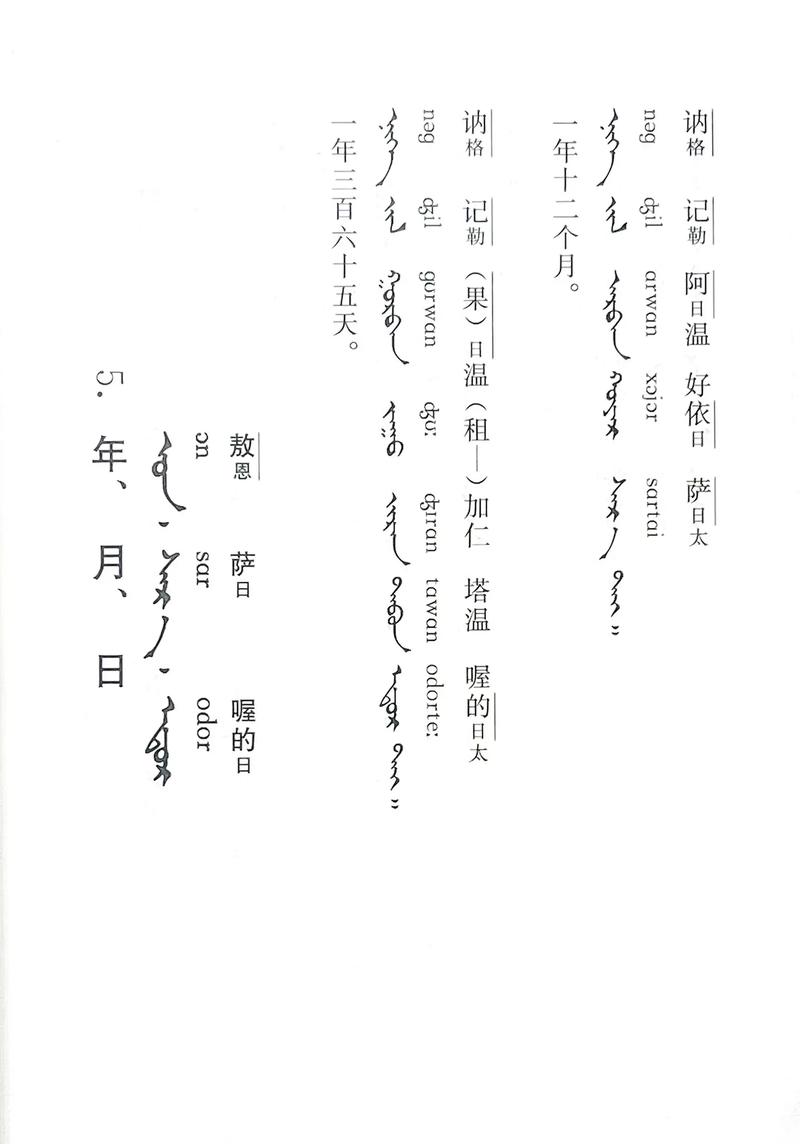 5. 年、月、日
ᠣᠨ ᠂ ᠰᠠᠷ᠎ᠠ ᠂ ᠡᠳᠦᠷ
ɔn sɑr odor
敖恩 萨日 喔的日
一年三百六十五天。
ᠨᠢᠭᠡ ᠵᠢᠯ ᠭᠤᠷᠪᠠᠨ ᠵᠠᠭᠤ ᠵᠢᠷᠠᠨ ᠲᠠᠪᠤᠨ ᠡᠳᠦᠷ ᠲᠡᠢ ᠃
nəg ʤil gʊrwɑn ʤʊː ʤɪrɑn tɑwɑn odorteː
讷格 记勒 （果）日温（租—）加仁 塔温 喔的日太
一年十二个月。
ᠨᠢᠭᠡ ᠵᠢᠯ ᠠᠷᠪᠠᠨ ᠬᠣᠶᠠᠷ ᠰᠠᠷ᠎ᠠ ᠲᠠᠢ ᠃
nəg ʤil ɑrwɑn xɔjɔr sɑrtɑi
讷格 记勒 阿日温 好依日 萨日太